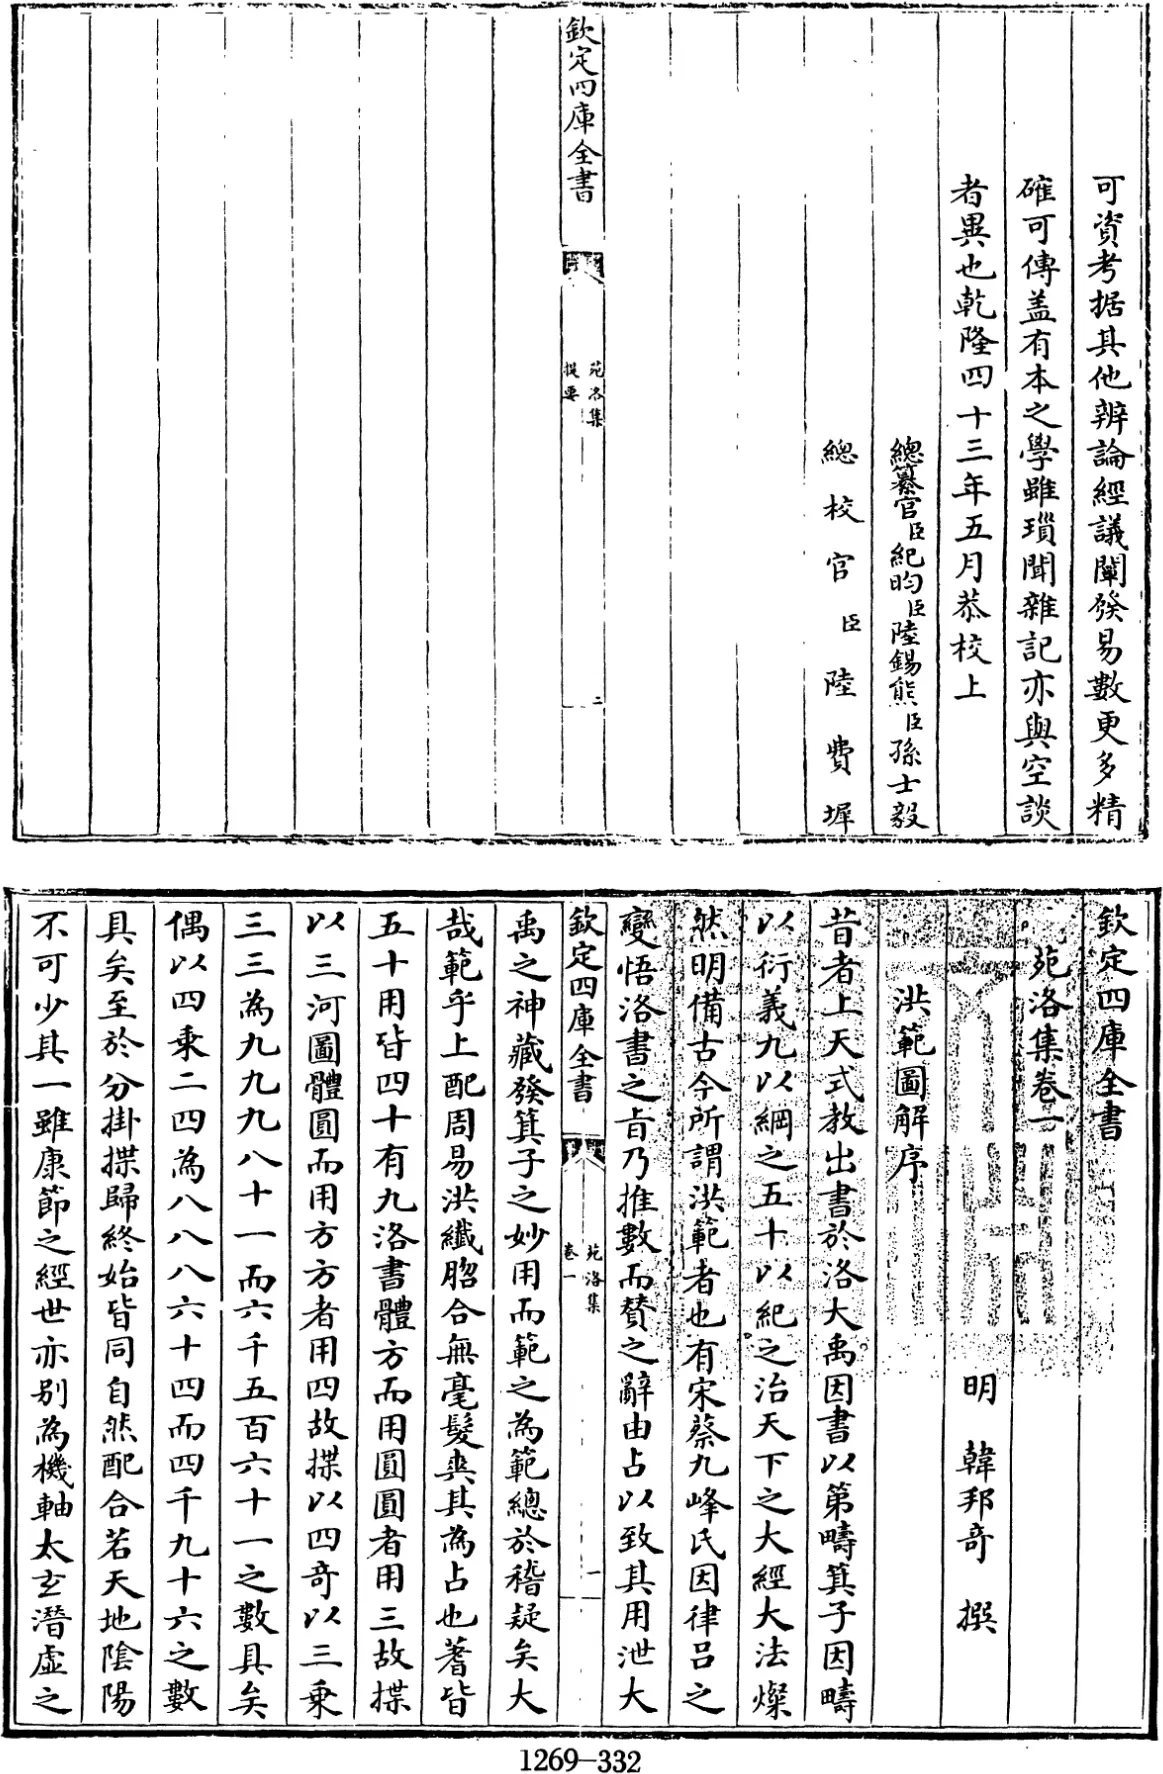 可資考据其他辨論經議闡發易數更多精
確可傳盖有本之學雖瑣聞雜記亦與空談
者異也乾隆四十三年五月恭校上
總纂官臣紀昀臣陸錫熊臣孫士毅
總校官臣陸費墀
欽定四庫全書
苑洛集
提要
二
欽定四庫全書
苑洛集卷一
明 韓邦奇 撰
洪範圖解序
昔者上天式教出書於洛大禹因書以第疇箕子因疇
以衍義九以綱之五十以紀之治天下之大經大法燦
然明備古今所謂洪範者也有宋蔡九峰氏因律呂之
變悟洛書之旨乃推數而賛之辭由占以致其用泄大
欽定四庫全書
苑洛集
卷一
一
禹之神藏發箕子之妙用而範之為範總於稽疑矣大
哉範乎上配周易洪纖脗合無毫髮爽其為占也蓍皆
五十用皆四十有九洛書體方而用圓圓者用三故揲
以三河圖體圓而用方方者用四故揲以四奇以三乗
三三為九九九八十一而六千五百六十一之數具矣
偶以四乗二四為八八八六十四而四千九十六之數
具矣至於分掛揲歸終始皆同自然配合若天地陰陽
不可少其一雖康節之經世亦别為機軸太玄潛虚之
1269—332